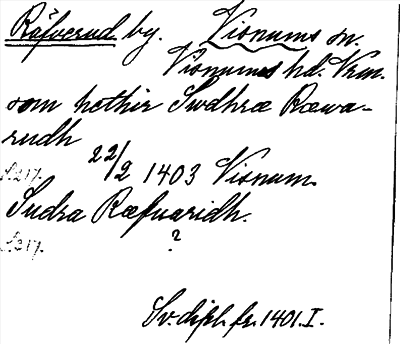 Räfverud by. Visnums sn.
Visnums hd. Vrm.
som hethir Swdhræ Ræwa-
rudh
22/2 1403 Visnum.
S. 217.
Sudra Ræfuaridh.
S. 217. ?
Sv. dipl. fr. 1401. I.